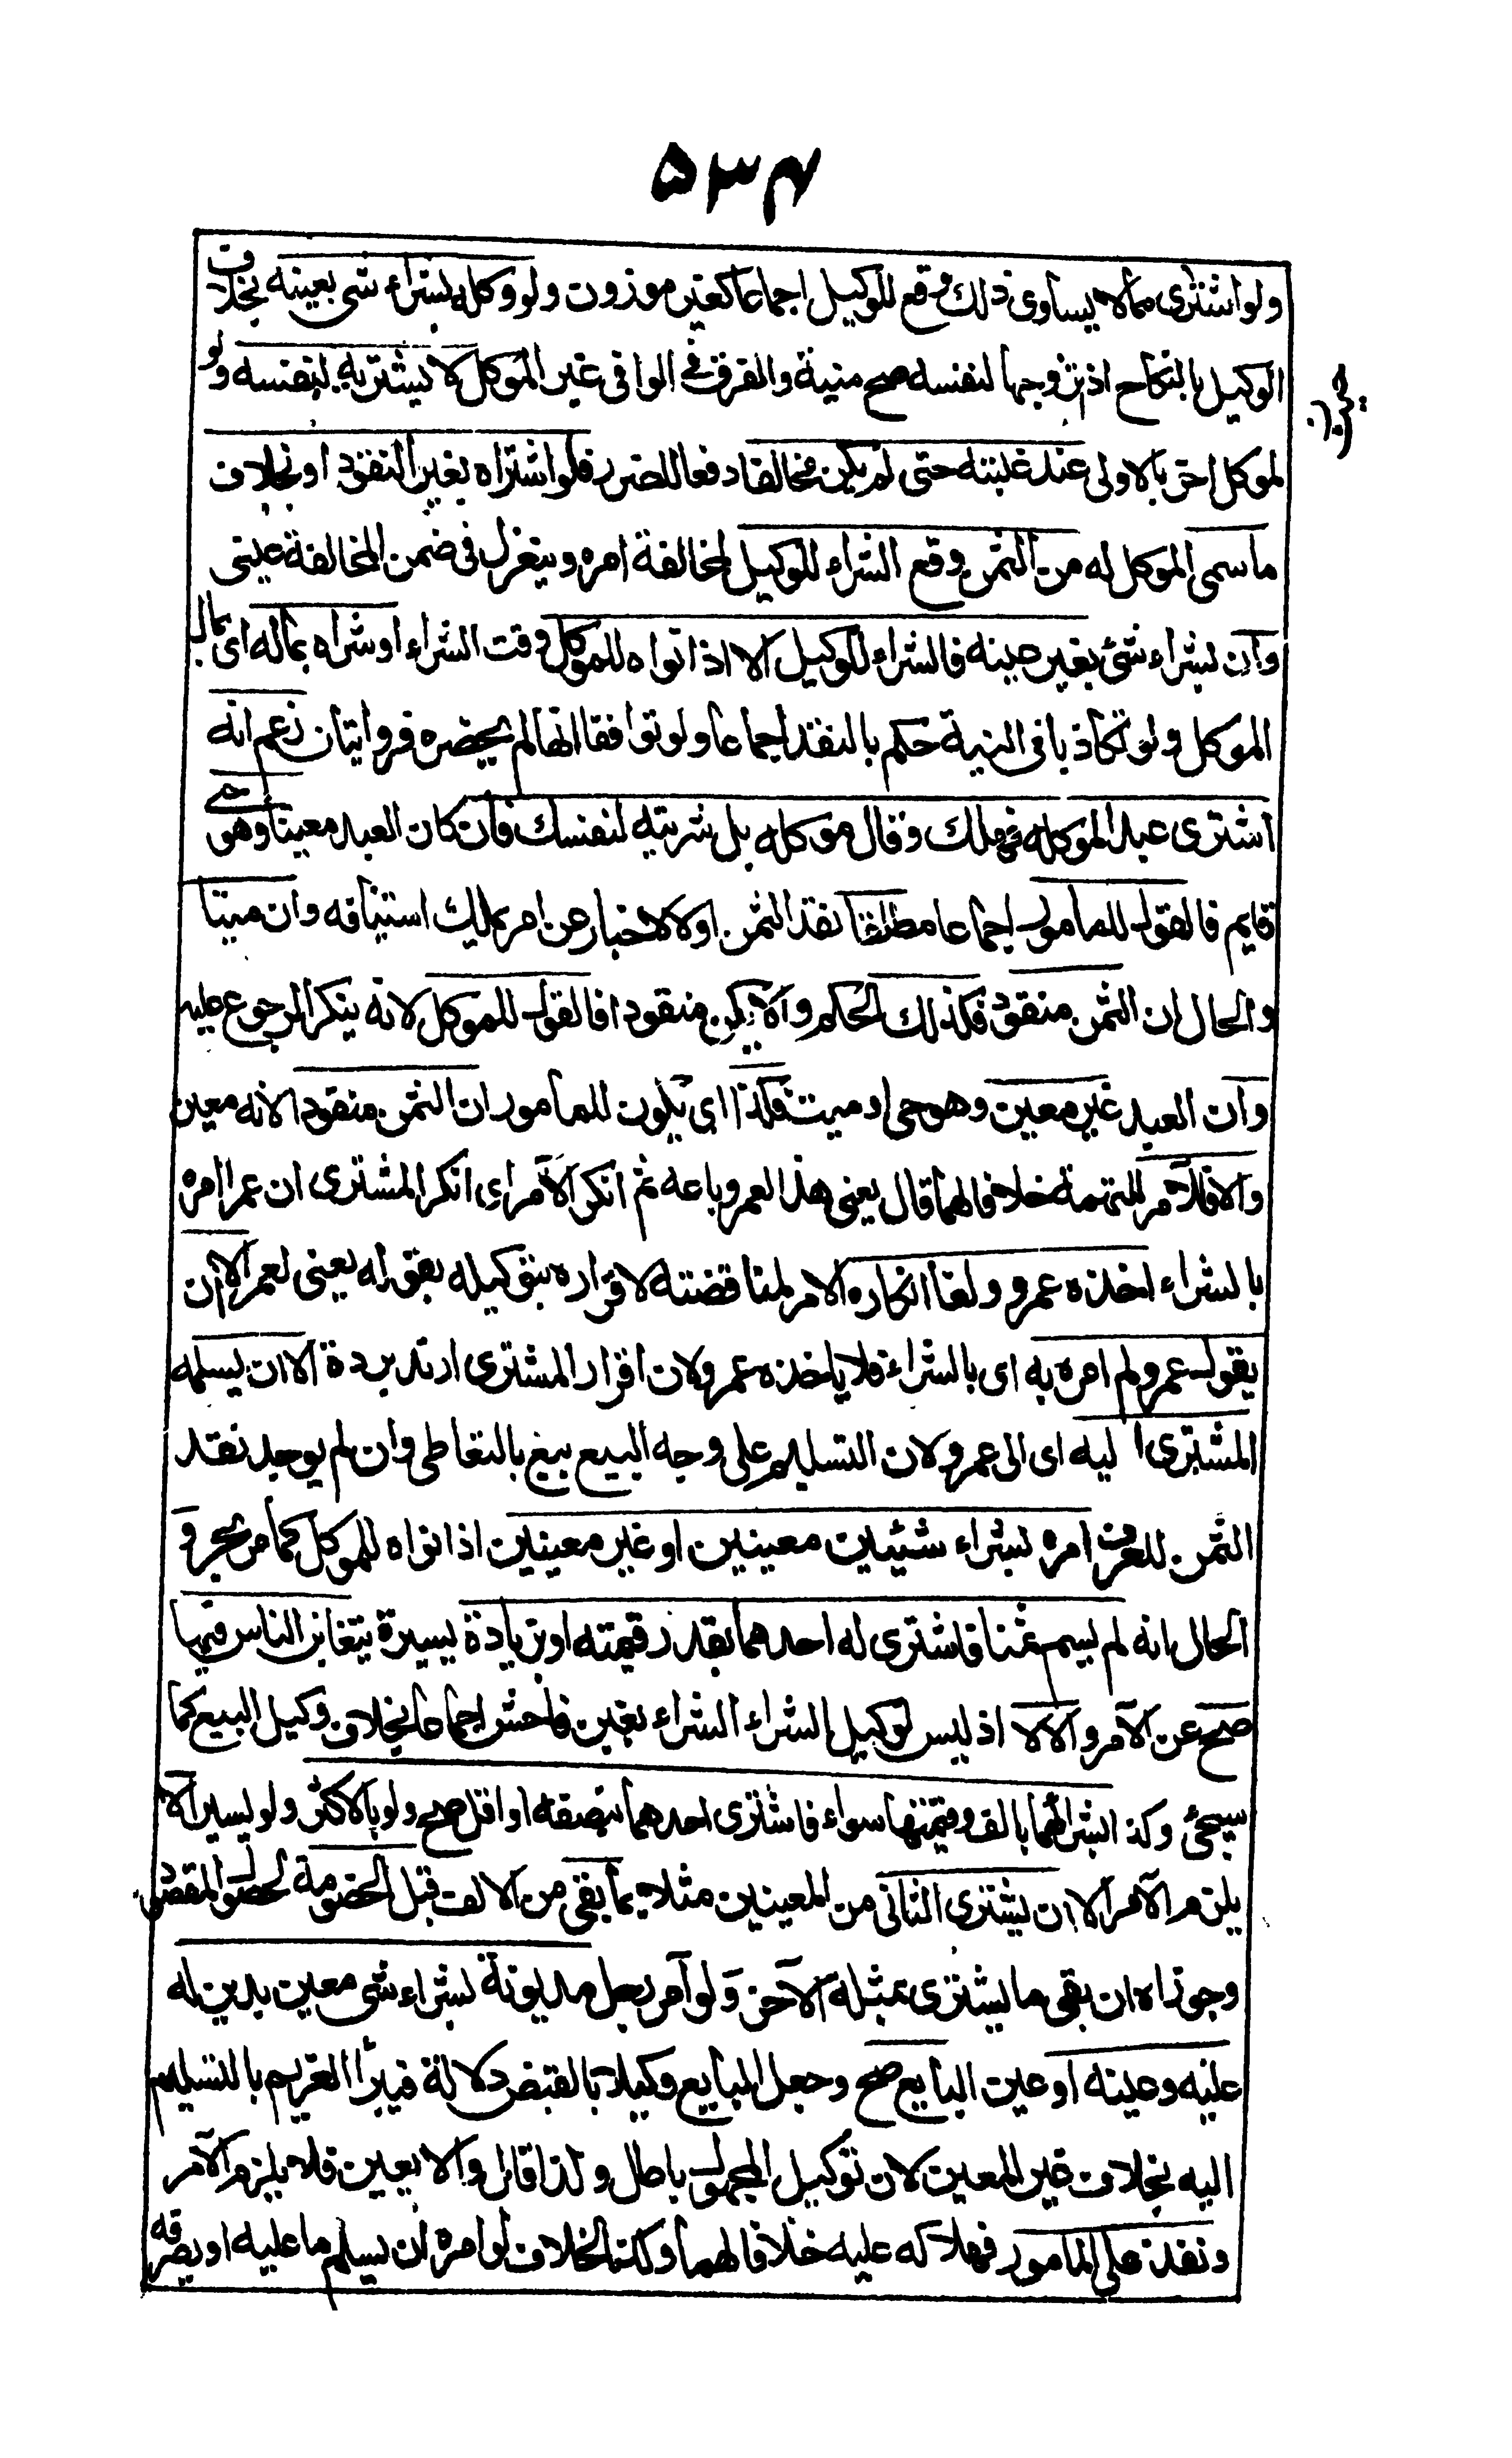 ۵۳۴
ولو اشترى مالا يساوى ذلك وقع للوكيل اجماعا كغير موزون ولو وكله بشراء شى بعينه بخلاف
الوكيل بالنكاح اذا تزوجها لنفسه صح منية والفرق فى الوانى غير الموكل لا يشتريه لنفسه ولو
لموكل اخر بالاولى عند غيبته حتى لم يكن مخالفا دفعا للضرر فلو اشتراه بغير النقود او بخلاف
ما سمى الموكل له من الثمن وقع الشراء للوكيل لمخالفة امره وينعزل فى ضمن المخالفة عينى
وان بشراء شئ بغير عينه فالشراء للوكيل الا اذا نواه للموكل وقت الشراء او شراه بماله اى بمال
الموكل ولو تكاذبا فى النية حكم بالنقد اجماعا ولو توافقا انها لم يحضره فروايتان زعم انه
اشترى عبدا لموكله فهلك وقال موكله بل شريته لنفسك فان كان العبد معينا وهو حى
قايم فالقول للمأمور اجماعا مطلقا نقد الثمن اولا لاخباره عن امر يملك استينافه وان ميتا
والحال ان الثمن منقود فكذلك الحكم والا يكن منقودا فالقول للموكل لانه ينكر الرجوع عليه
وان العبد غير معين وهو حى او ميت فكذا اى يكون للمأمور ان الثمن منقودا لانه معين
والا فللآمر للتهمة خلافا لهما قال بعنى هذا لعمرو باعه ثم انكر الآمر اى انكر المشترى ان عمرا امره
بالشراء اخذه عمرو ولغا انكاره الامر لمناقضته لاقراره بتوكيله بقوله بعنى لعمرو الا ان
يقول عمرو لم امره به اى بالشراء فلا ياخذه عمرو لان اقرار المشترى ارتد برده الا ان يسلمه
المشترى اليه اى الى عمرو لان التسليم على وجه البيع بيع بالتعاطى وان لم يوجد نقد
الثمن للعرف امره بشراء شيئين معينين او غير معينين اذا نواه للموكل كما مر بحر و
الحال انه لم يسم ثمنا فاشترى له احدهما بقدر قيمته او بزيادة يسيرة يتغابن الناس فيها
صح عن الآمر والا لا اذ ليس لوكيل الشراء الشراء بغبن فاحش اجماعا بخلاف وكيل البيع كما
سيجئ وكذا بشرائهما بالف وقيمتهما سواء فاشترى احدهما بنصفه او اقل صح ولو بالاكثر ولو يسيرا لا
يلزم الآمر الا ان يشترى الثانى من المعينين مثلا بما بقى من الالف قبل الخصومة لحصول المقصود
وجوزاه ان بقى ما يشترى بمثله الآخر ولو آمر رجل مديونه بشراء شى معين بدين له
عليه وعينه او عين البايع صح وجعل البايع وكيلا بالقبض دلالة فيبرأ الغريم بالتسليم
اليه بخلاف غير المعين لان توكيل المجهول باطل ولذا قال والا يعين فلا يلزم الآمر
ونفذ على المامور فهلاكه عليه خلافا لهما وكذا الخلاف لو امره ان يسلم ما عليه او يصرفه